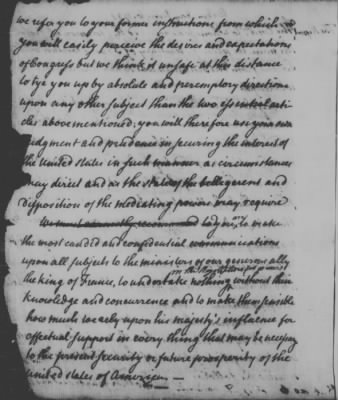 we refer you to your former instructions from which
you will easily perceive the desires and expectations
of Congress but we think it unsafe at this distance
to tye you up by absolute and peremptory directions
upon any other subject than the two essential arti
cles abovementioned; you will therefore use your own
judgment and prudence in securing the interest of
the United States in such manner as circumstances
may direct and as the state of the belligerent and
disposition of the mediating powers may require
to make
the most candid and confidential communications
upon all subjects to the ministers of our generous ally
the king of France, to undertake nothing without their
knowledge and concurrence and to make them sensible
how much we rely upon his majesty's influence for
effectual support in every thing that may be necessary
to the present security or future prosperity of the
united states of America